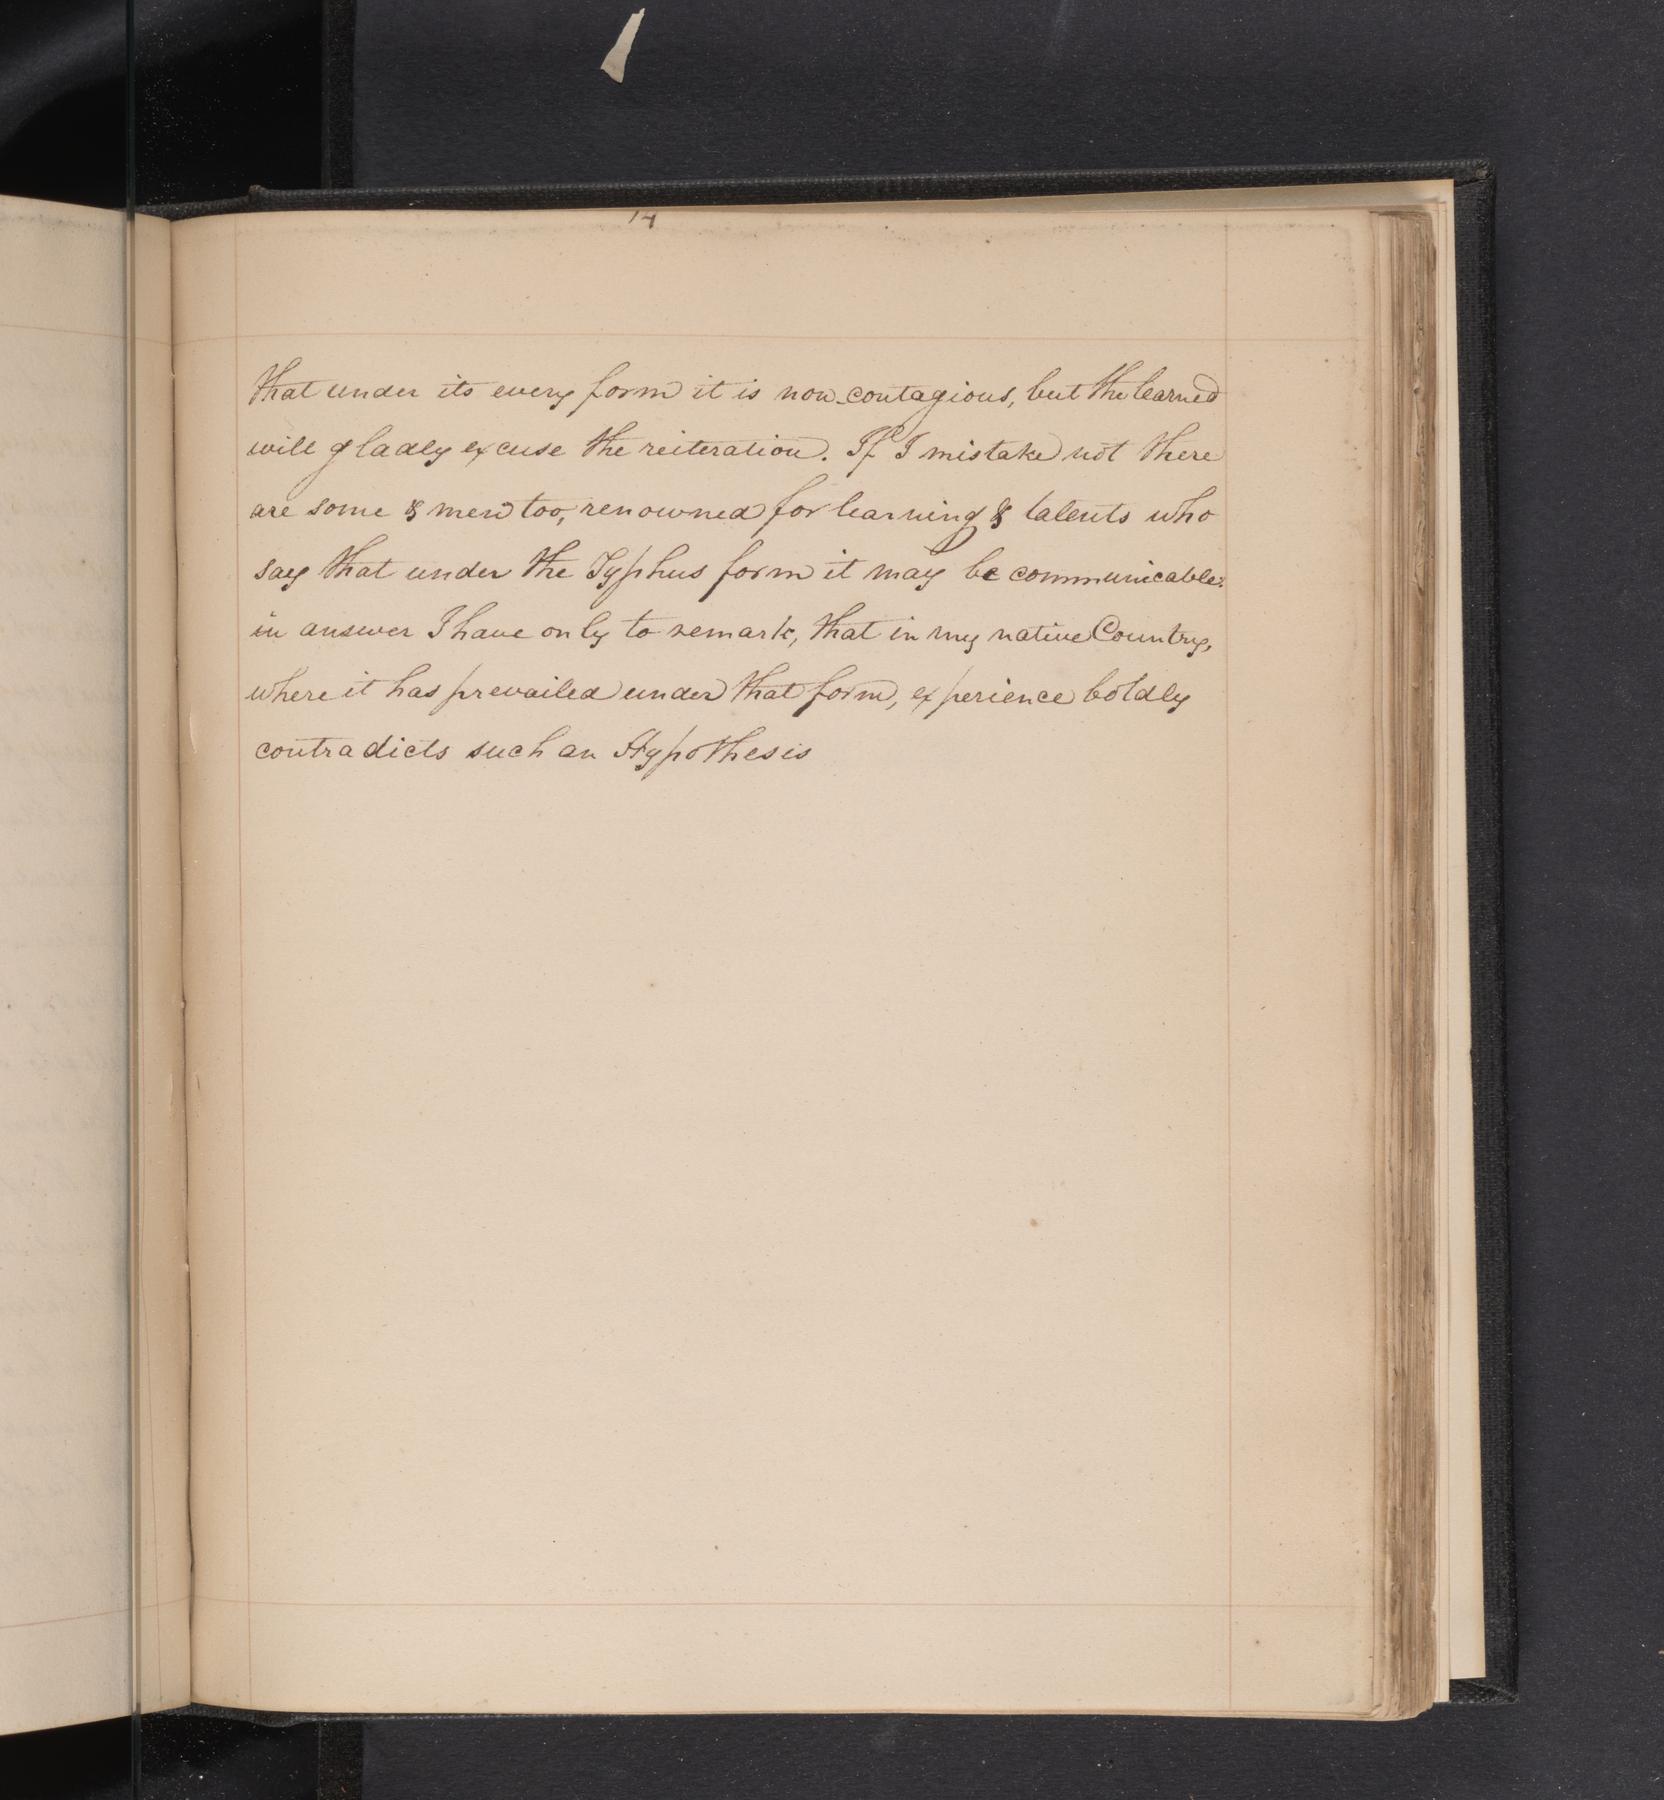 14
that under its every form it is non-contagious, but the learned
will gladly excuse the reiteration. If I mistake not there
are some & men too, renowned for learning & talents who
say that under the Typhus form it may be communicable.
in answer I have only to remark, that in my native Country,
where it has prevailed under that form, experience boldly
contradicts such an Hypothesis